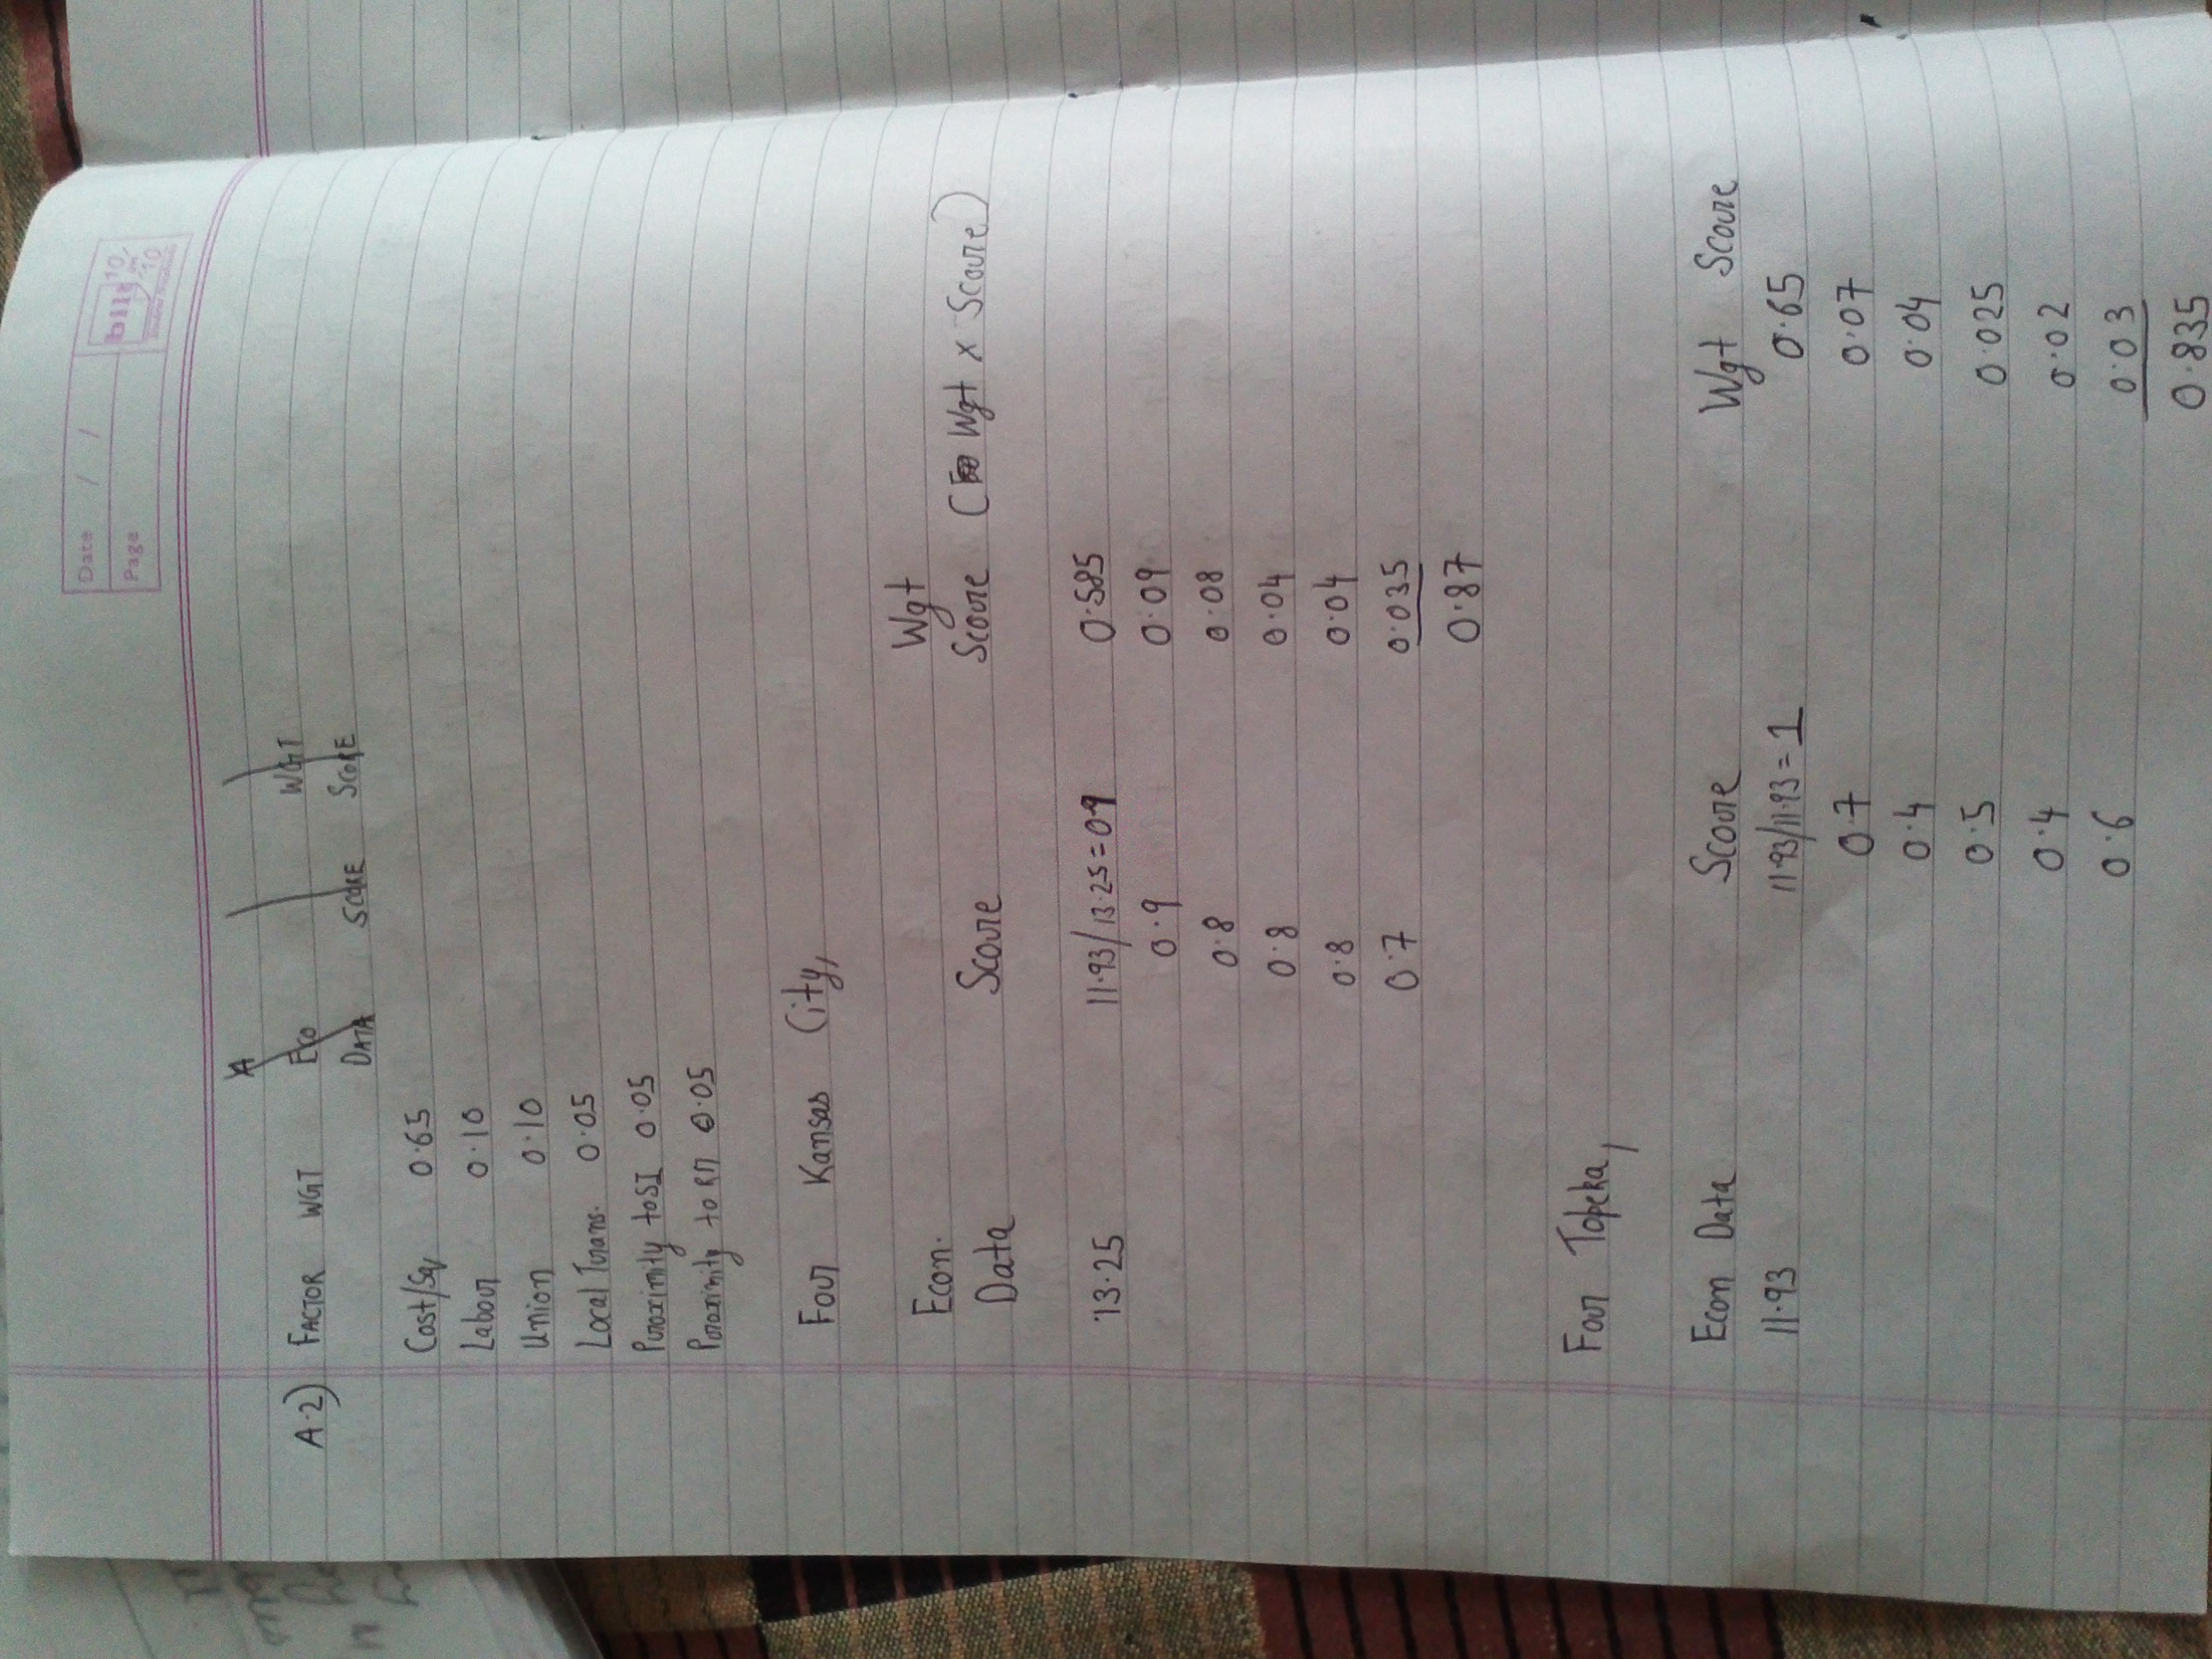 Date / /
Page
bilt 10/10
A·2) FACTOR WGT ECO DATA SCORE WGT SCORE
Cost/Sq 0·65
Labour 0·10
Union 0·10
Local Trans. 0·05
Proximity to SI 0·05
Proximity to RM 0·05
For Kansas City,
Econ. Wgt
Data Score Score ( Wgt x Score)
13·25 11·93/13·25=0·9 0·585
0·9 0·09
0·8 0·08
0·8 0·04
0·8 0·04
0·7 0·035
0·87
For Topeka,
Econ Data Score Wgt Score
11·93 11·93/11·93=1 0·65
0·7 0·07
0·4 0·04
0·5 0·025
0·4 0·02
0·6 0·03
0·835